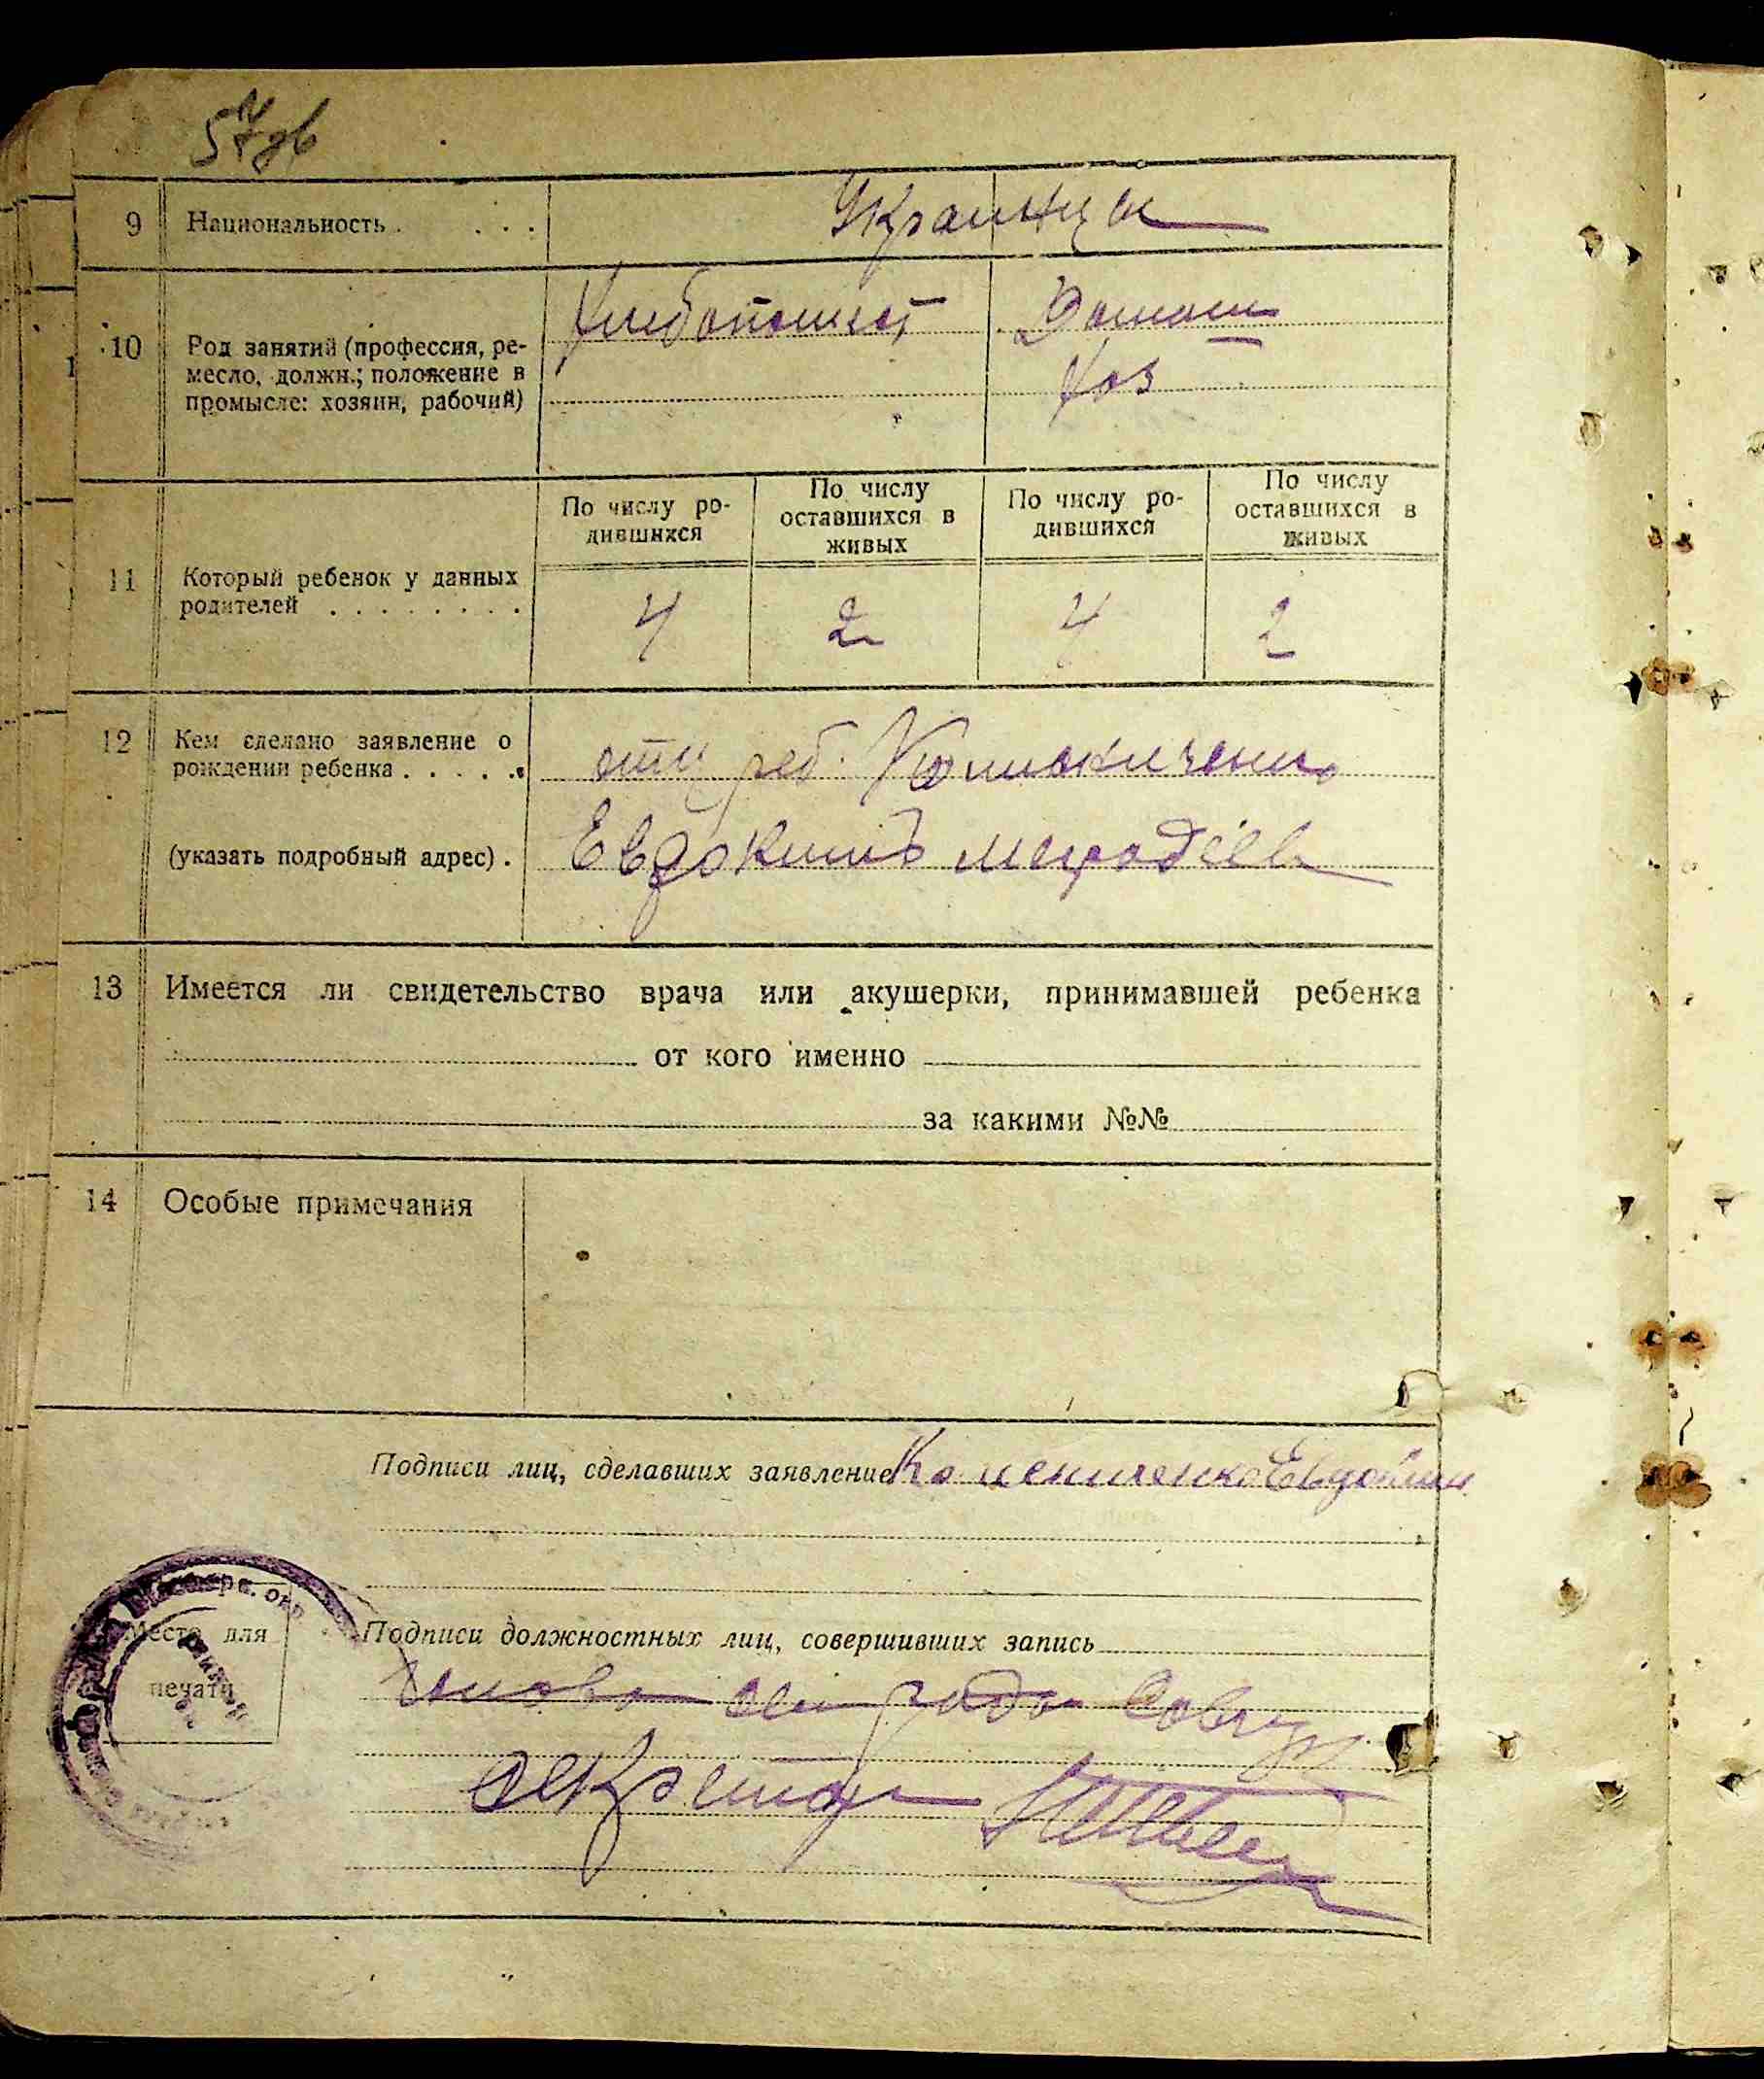 57 зв
9 Национальность . . . . Украинцы
10 Род занятий (профессия, ре-
месло, должн.; положение в
промысле: хозяин, рабочий)
Хлебопашест Домаш
Хоз
11 Который ребенок у данных
родителей . . . . . . . .
По числу ро-
дившихся
По числу
оставшихся в
живых
По числу ро-
дившихся
По числу
оставшихся в
живых
4 2 4 2
12 Кем сделано заявление о
рождении ребенка . . . . . отец реб.
(указать подробный адрес) . Евдокимъ
13 Имеется ли свидетельство врача или акушерки, принимавшей ребенка
от кого именно
за какими №№
14 Особые примечания
Подписи лиц, сделавших заявление
Место для
печати
Подписи должностных лиц, совершивших запись
Голова
секретар